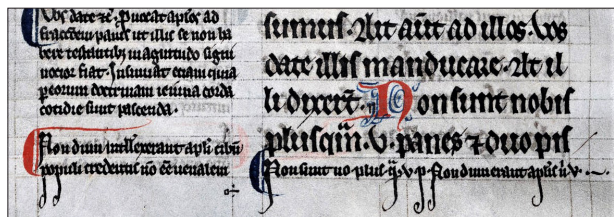 Vos date ⁊c̄. Puocat aptos ad
fractoem panis ut illis se non ha
bere testantibȝ magnitudo signi
notior fiat. Insinuat etiam quia
p eorum doctrinam ieiuna corda
cotidie sunt pascenda.
Nondum intellexerant apli cibū
populi credentis nō eē uenalem
sumus. Ait aūt ad illos. Vos
date illis manducare. At il
li dixert̄. Non sunt nobis
plus qm̄. v. panes ⁊ duo pis
Non sunt uo plus q̄. v. p. Nondum erant apli